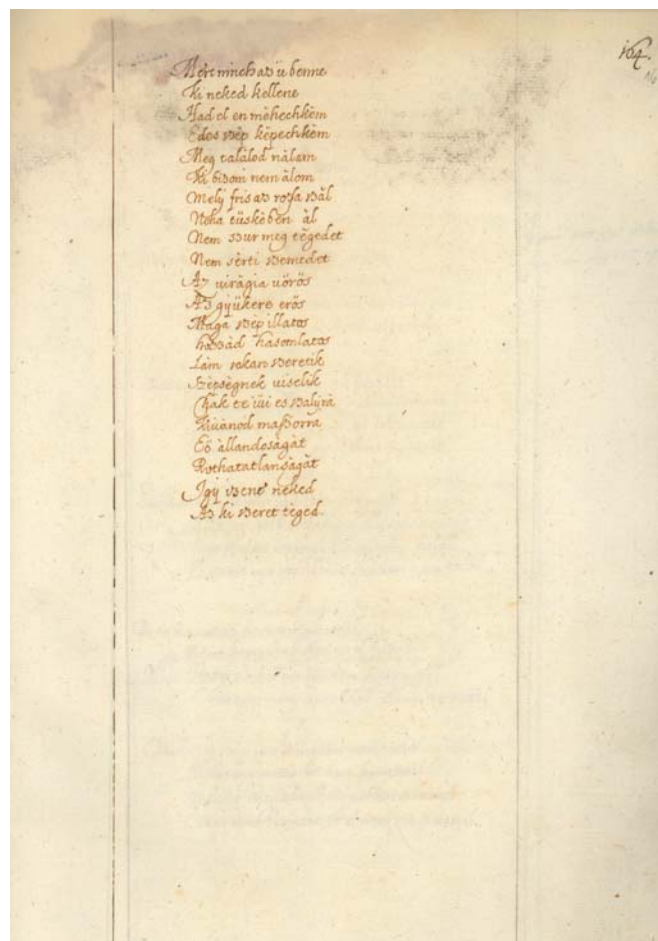 164.
Mert ninch az ü benne
Ki neked kellene
Had el en mèhechkèm
Edes szèp kèpechkèm
Meg talàlod nàlam
Ki bizom nem àlom
Mely fris az rosa szàl
Noha tüskèben àl
Nem szur meg tègedet
Nem sèrti szemedet
Az viràgia vörös
Az gyükere erös
Maga szèp illatos
hozzàd hasomlatos
Làm sokan szeretik
Szèpsègnek viselik
Chak te
Kivànod
Eö àllandosàgàt
Rothatatlansàgàt
Igy izent neked
Az ki szeret tèged.